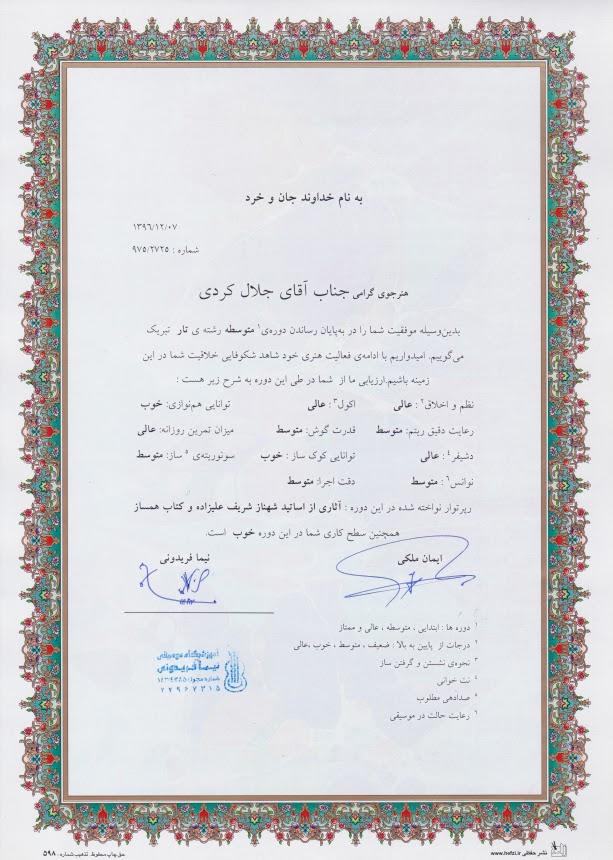 به نام خداوند جان و خرد
۱۳۹۶/۱۲/۰۷
شماره : ۹۷۵/۲۷۲۵
هنرجوی گرامی جناب آقای جلال کردی
بدین‌وسیله موفقیت شما را در به‌پایان رساندن دوره‌ی¹ متوسطه رشته ی تار تبریک
می‌گوییم. امیدواریم با ادامه‌ی فعالیت هنری خود شاهد شکوفایی خلاقیت شما در این
زمینه باشیم.ارزیابی ما از شما در طی این دوره به شرح زیر هست :
نظم و اخلاق² : عالی اکول³ : عالی توانایی هم‌نوازی: خوب
رعایت دقیق ریتم: متوسط قدرت گوش: متوسط میزان تمرین روزانه: عالی
دشیفر⁴ : عالی توانایی کوک ساز : خوب سونوریته‌ی⁵ ساز: متوسط
نوانس⁶ : متوسط دقت اجرا: متوسط
رپرتوار نواخته شده در این دوره : آثاری از اساتید شهناز شریف علیزاده و کتاب همساز
همچنین سطح کاری شما در این دوره خوب است.
ایمان ملکی نیما فریدونی
¹ دوره ها : ابتدایی ، متوسطه ، عالی و ممتاز
² درجات از پایین به بالا : ضعیف ، متوسط ، خوب ،عالی
³ نحوه‌ی نشستن و گرفتن ساز
⁴ نت خوانی
⁵ صدادهی مطلوب
⁶ رعایت حالت در موسیقی
آموزشگاه موسیقی
نیما فریدونی
شماره مجوز:
۲۲۹۶۷۳۱۵
نشر حفظی www.hefzi.ir
حق چاپ محفوظ. تذهیب شماره : ۵۹۸